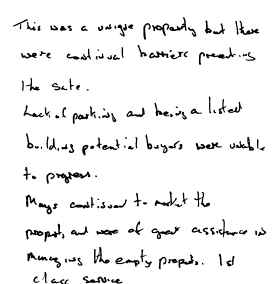 This was a unique property but there
were continual barriers preventing
the sale.
Lack of parking and being a listed
building potential buyers were unable
to progress.
Mays continued to market the
property and were of great assistance in
managing the empty property. 1st
class service